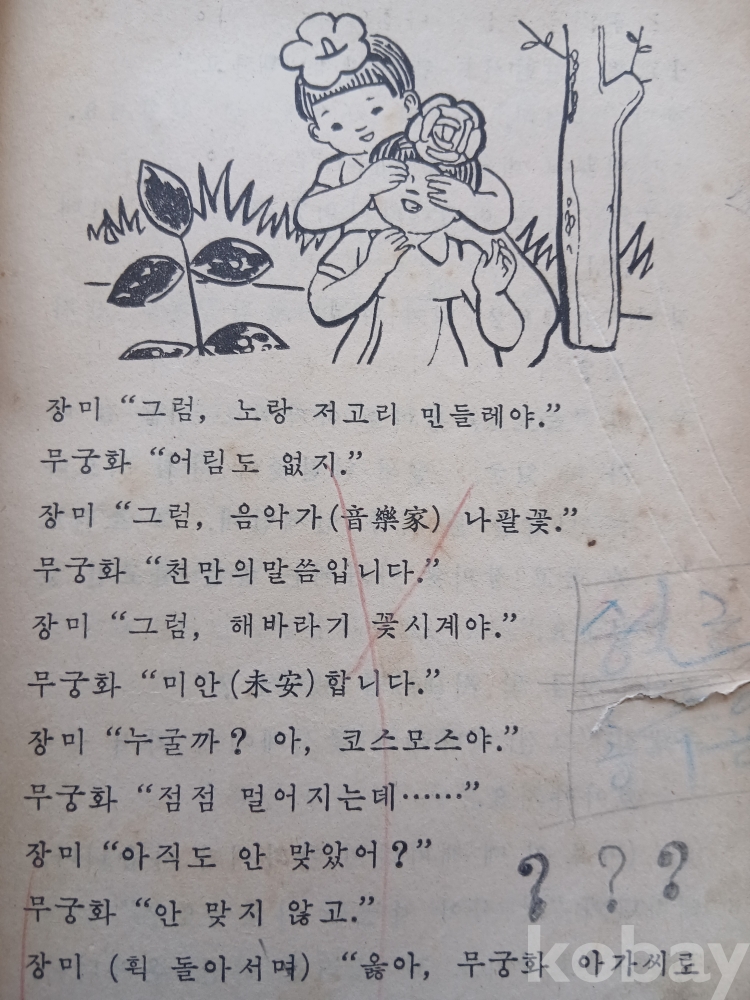 장미 “그럼, 노랑 저고리 민들레야.”
무궁화 “어림도 없지.”
장미 “그럼, 음악가(音樂家) 나팔꽃.”
무궁화 “천만의말씀입니다.”
장미 “그럼, 해바라기 꽃시계야.”
무궁화 “미안(未安)합니다.”
장미 “누굴까? 아, 코스모스야.”
무궁화 “점점 멀어지는데……”
장미 “아직도 안 맞았어?”
무궁화 “안 맞지 않고.”
? ? ?
장미 (휙 돌아서며) “옳아, 무궁화 아가씨로
kobay